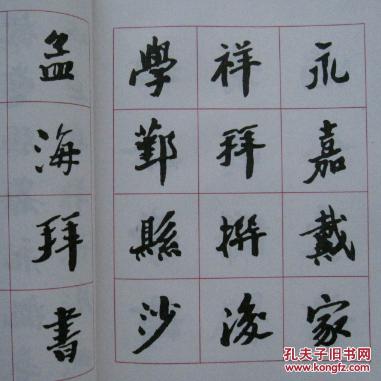 永嘉戴家
祥拜撰後
學鄞縣沙
孟海拜書
孔夫子旧书网
www.kongfz.com